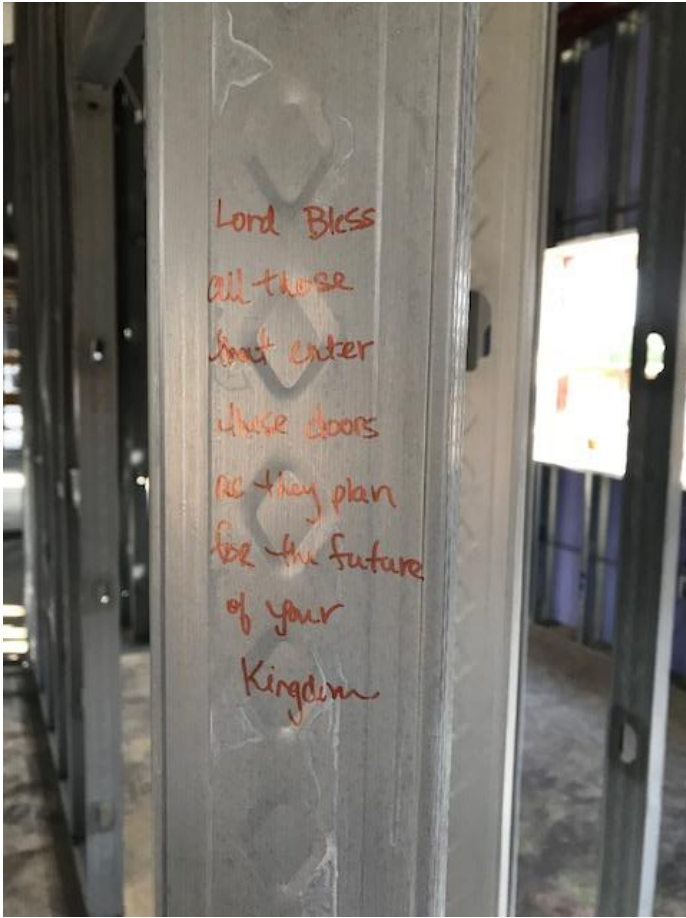 Lord Bless
all those
that enter
these doors
as they plan
for the future
of your
Kingdom